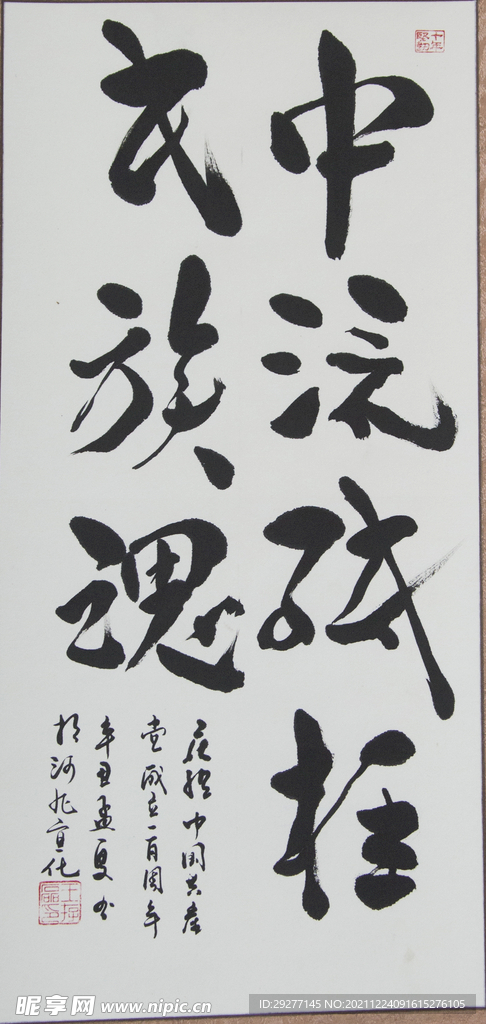 中流砥柱
民族魂
庆祝中国共産
党成立一百周年
辛丑孟夏书
於河北宣化
昵享网 www.nipic.cn
ID:29277145 NO:20211224091615276105